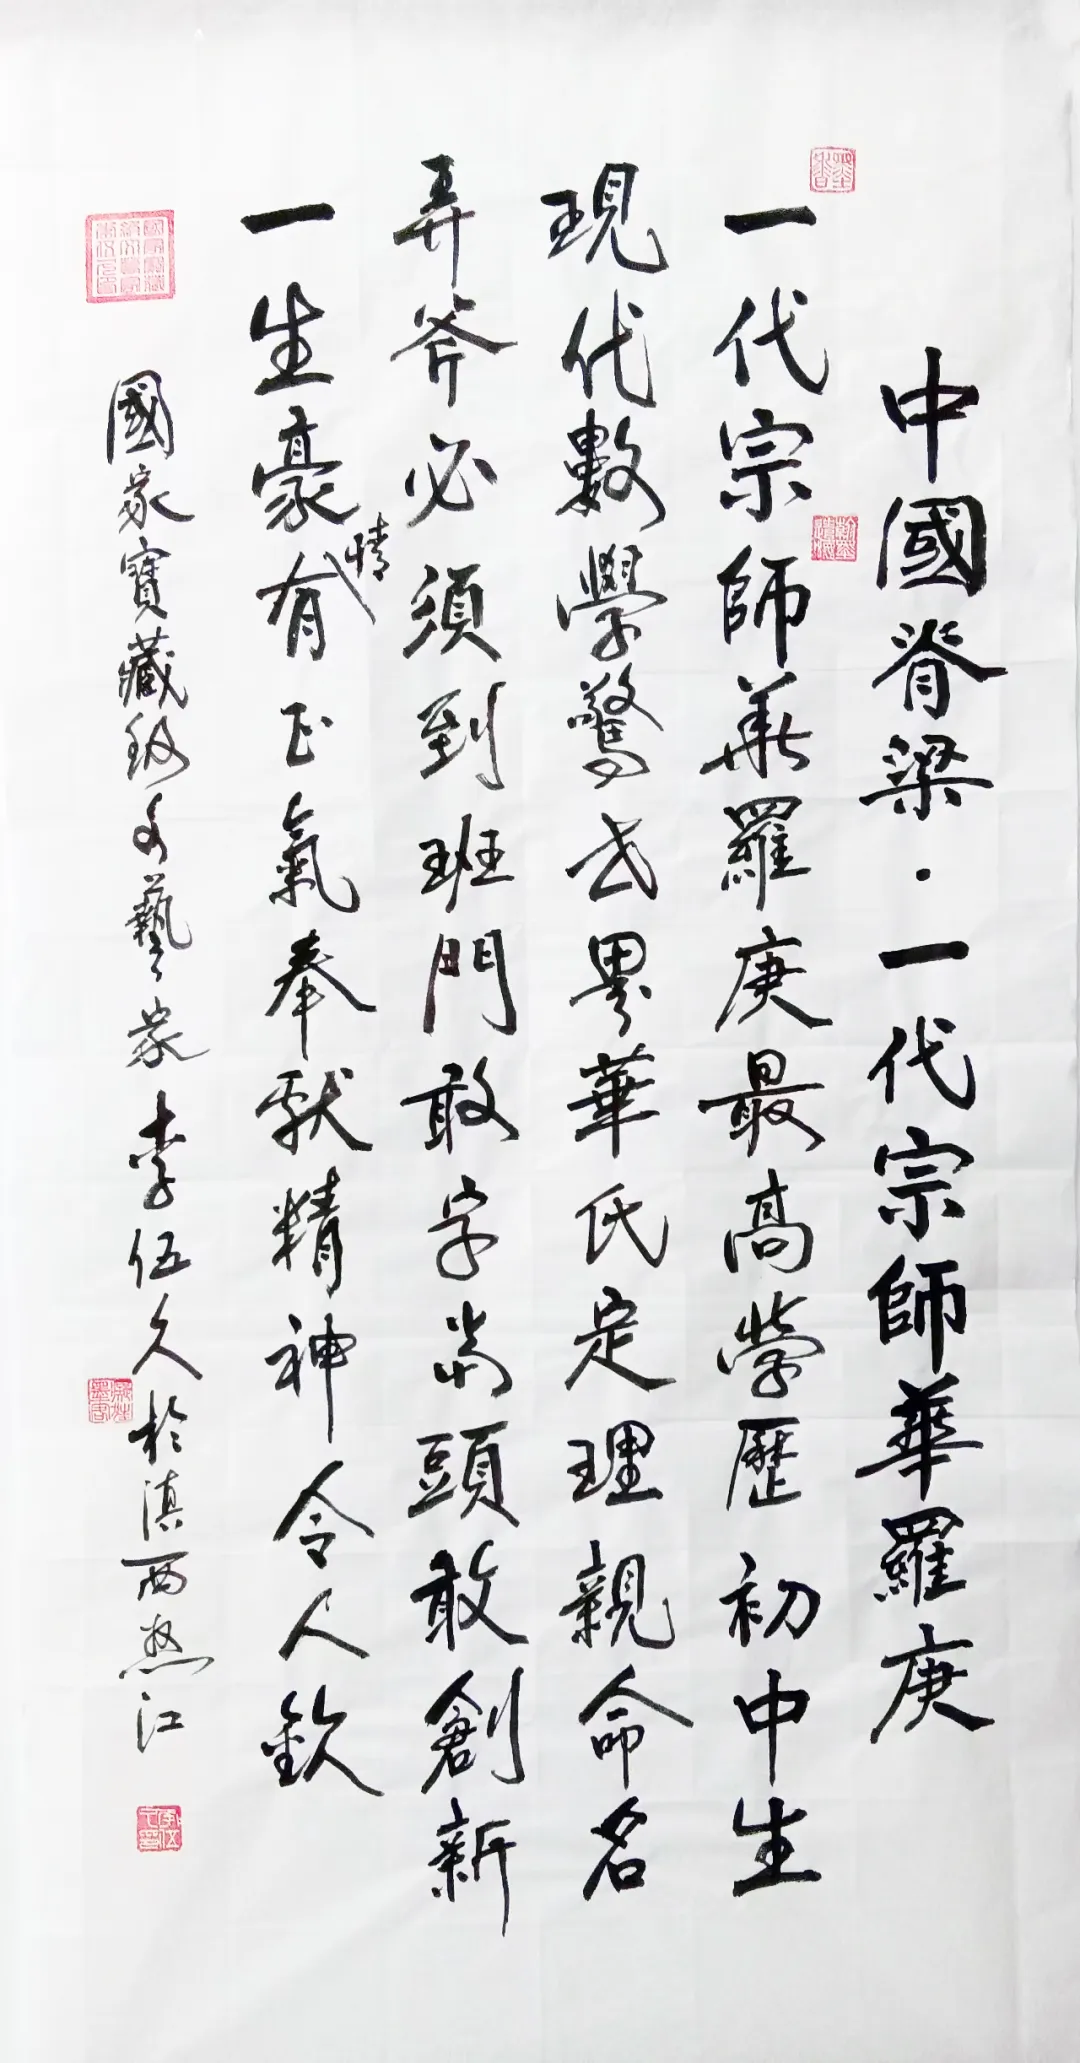 中國脊梁·一代宗師華羅庚
一代宗師華羅庚最高學歷初中生
現代數學驚世界華氏定理親命名
弄斧必須到班門敢字當頭敢創新
一生豪情有正氣奉獻精神令人欽
國家寶藏級文藝家李伍久於滇西怒江